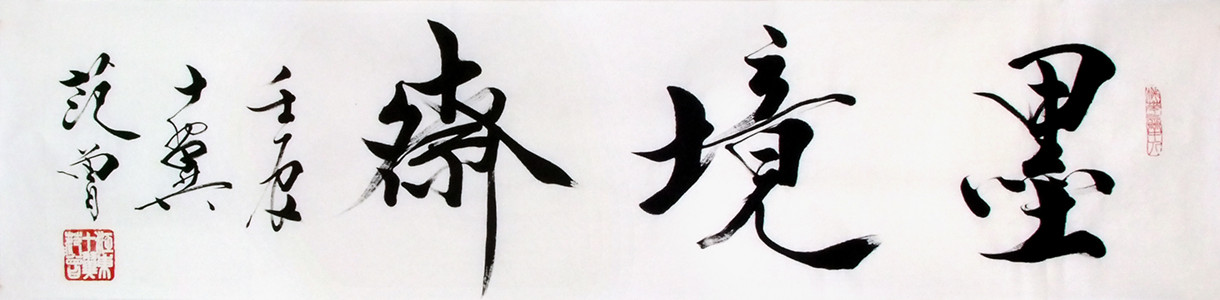 墨境斎
壬辰
十翼
范曾